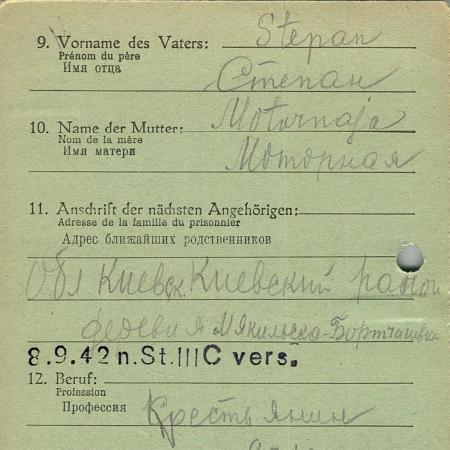 9. Vorname des Vaters: Stepan
Prénom du père
Имя отца Степан
Motornaja
10. Name der Mutter:
Nom de la mère
Имя матери Моторная
11. Anschrift der nächsten Angehörigen:
Adresse de la famille du prisonnier
Адрес ближайших родственников
Обл Киевск. Киевский район
8.9.42 n.St.IIIC vers.
12. Beruf:
Profession
Профессия Крестьянин